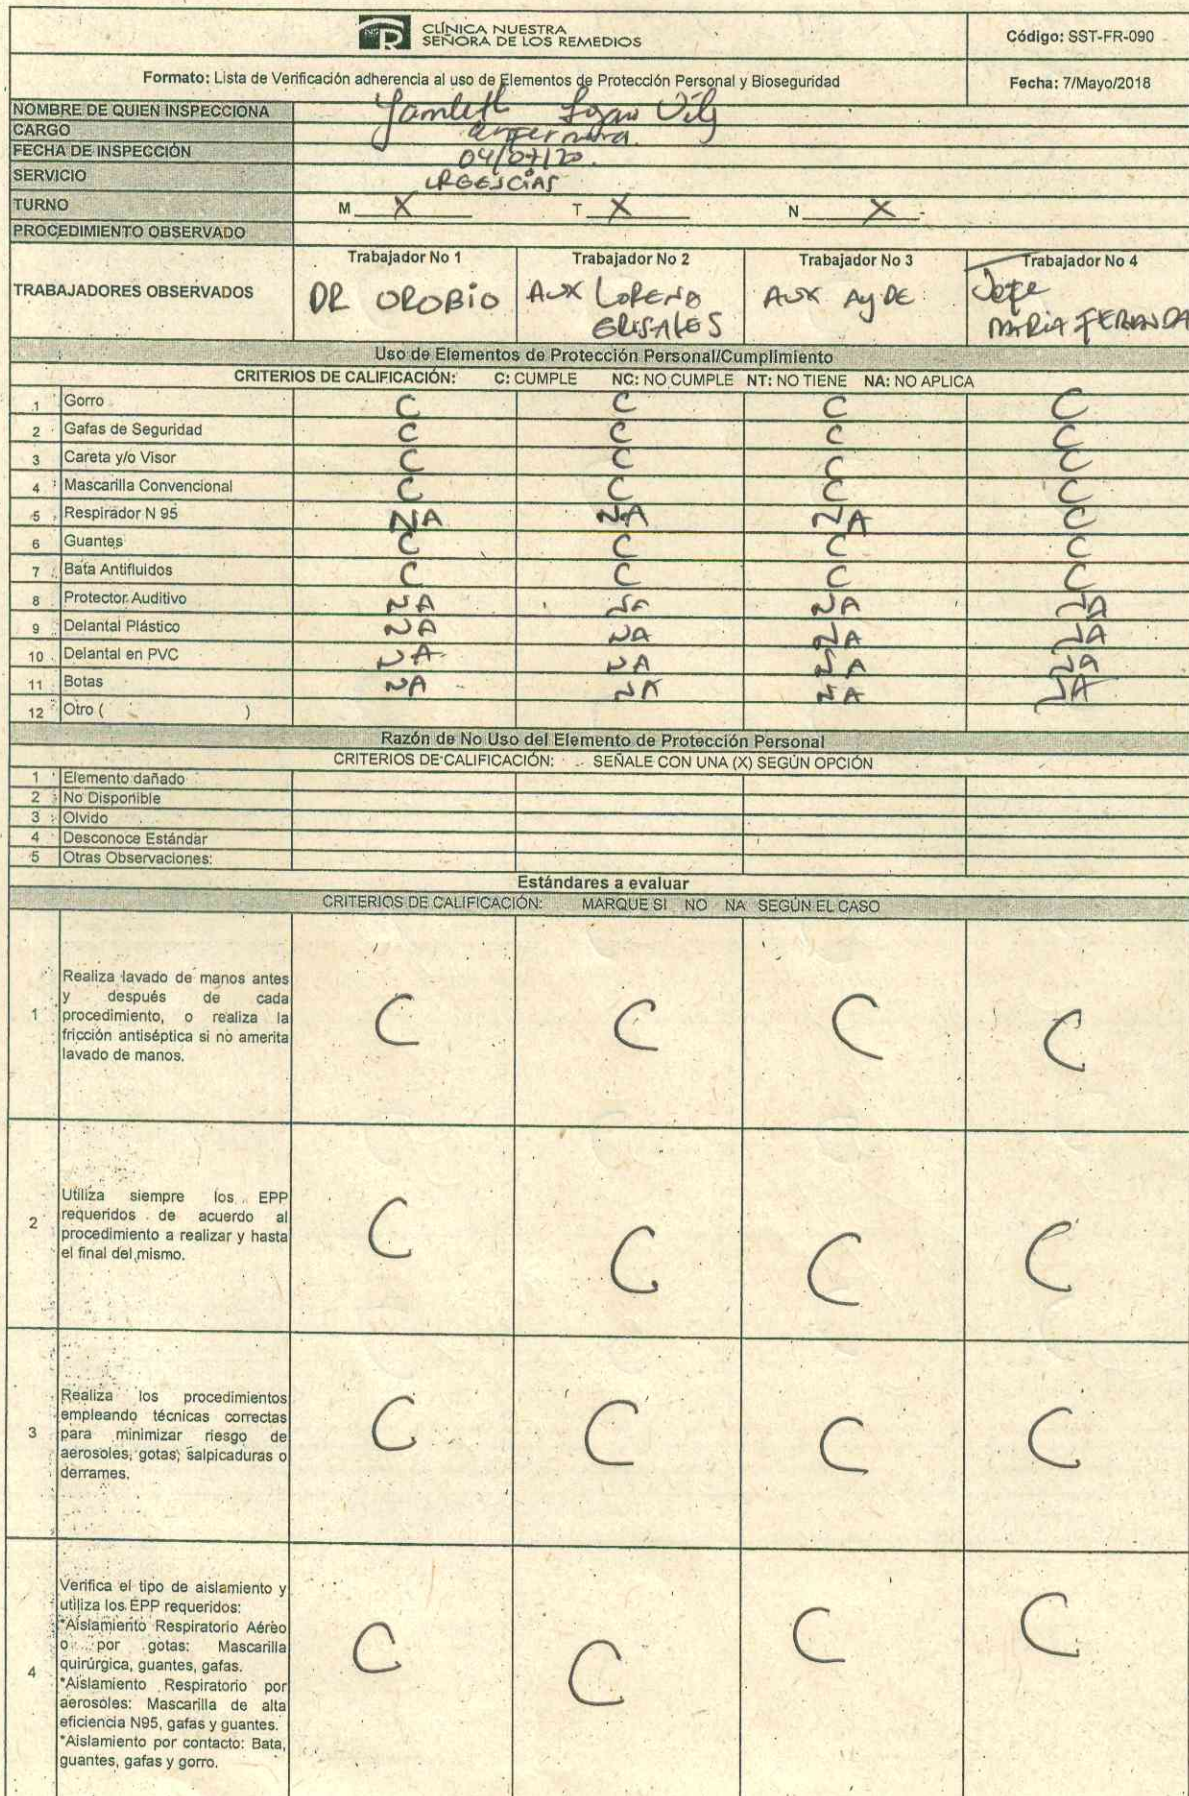 CLÍNICA NUESTRA
SEÑORA DE LOS REMEDIOS
Código: SST-FR-090
Formato: Lista de Verificación adherencia al uso de Elementos de Protección Personal y Bioseguridad
Fecha: 7/Mayo/2018
NOMBRE DE QUIEN INSPECCIONA
CARGO enfermera
FECHA DE INSPECCIÓN 04/07/20
SERVICIO URGENCIAS
TURNO M X T X N X
PROCEDIMIENTO OBSERVADO
Trabajador No 1 Trabajador No 2 Trabajador No 3 Trabajador No 4
TRABAJADORES OBSERVADOS
DR OROBIO AUX LORENA GRISALES AUX AYDE Jefe MARIA FERNANDA
Uso de Elementos de Protección Personal/Cumplimiento
CRITERIOS DE CALIFICACIÓN: C: CUMPLE NC: NO CUMPLE NT: NO TIENE NA: NO APLICA
1 Gorro C C C C
2 Gafas de Seguridad C C C C
3 Careta y/o Visor C C C C
4 Mascarilla Convencional C C C C
5 Respirador N 95 NA NA NA C
6 Guantes C C C C
7 Bata Antifluidos C C C C
8 Protector Auditivo NA NA NA NA
9 Delantal Plástico NA NA NA NA
10 Delantal en PVC NA NA NA NA
11 Botas NA NA NA NA
12 Otro ( )
Razón de No Uso del Elemento de Protección Personal
CRITERIOS DE CALIFICACIÓN: SEÑALE CON UNA (X) SEGÚN OPCIÓN
1 Elemento dañado
2 No Disponible
3 Olvido
4 Desconoce Estándar
5 Otras Observaciones:
Estándares a evaluar
CRITERIOS DE CALIFICACIÓN: MARQUE SI NO NA SEGÚN EL CASO
Realiza lavado de manos antes
y después de cada
1 procedimiento, o realiza la C C C C
fricción antiséptica si no amerita
lavado de manos.
Utiliza siempre los EPP
2 requeridos de acuerdo al C C C C
procedimiento a realizar y hasta
el final del mismo.
Realiza los procedimientos
empleando técnicas correctas
3 para minimizar riesgo de C C C C
aerosoles, gotas, salpicaduras o
derrames.
Verifica el tipo de aislamiento y
utiliza los EPP requeridos:
*Aislamiento Respiratorio Aéreo
o por gotas: Mascarilla
quirúrgica, guantes, gafas.
4 *Aislamiento Respiratorio por C C C C
aerosoles: Mascarilla de alta
eficiencia N95, gafas y guantes.
*Aislamiento por contacto: Bata,
guantes, gafas y gorro.